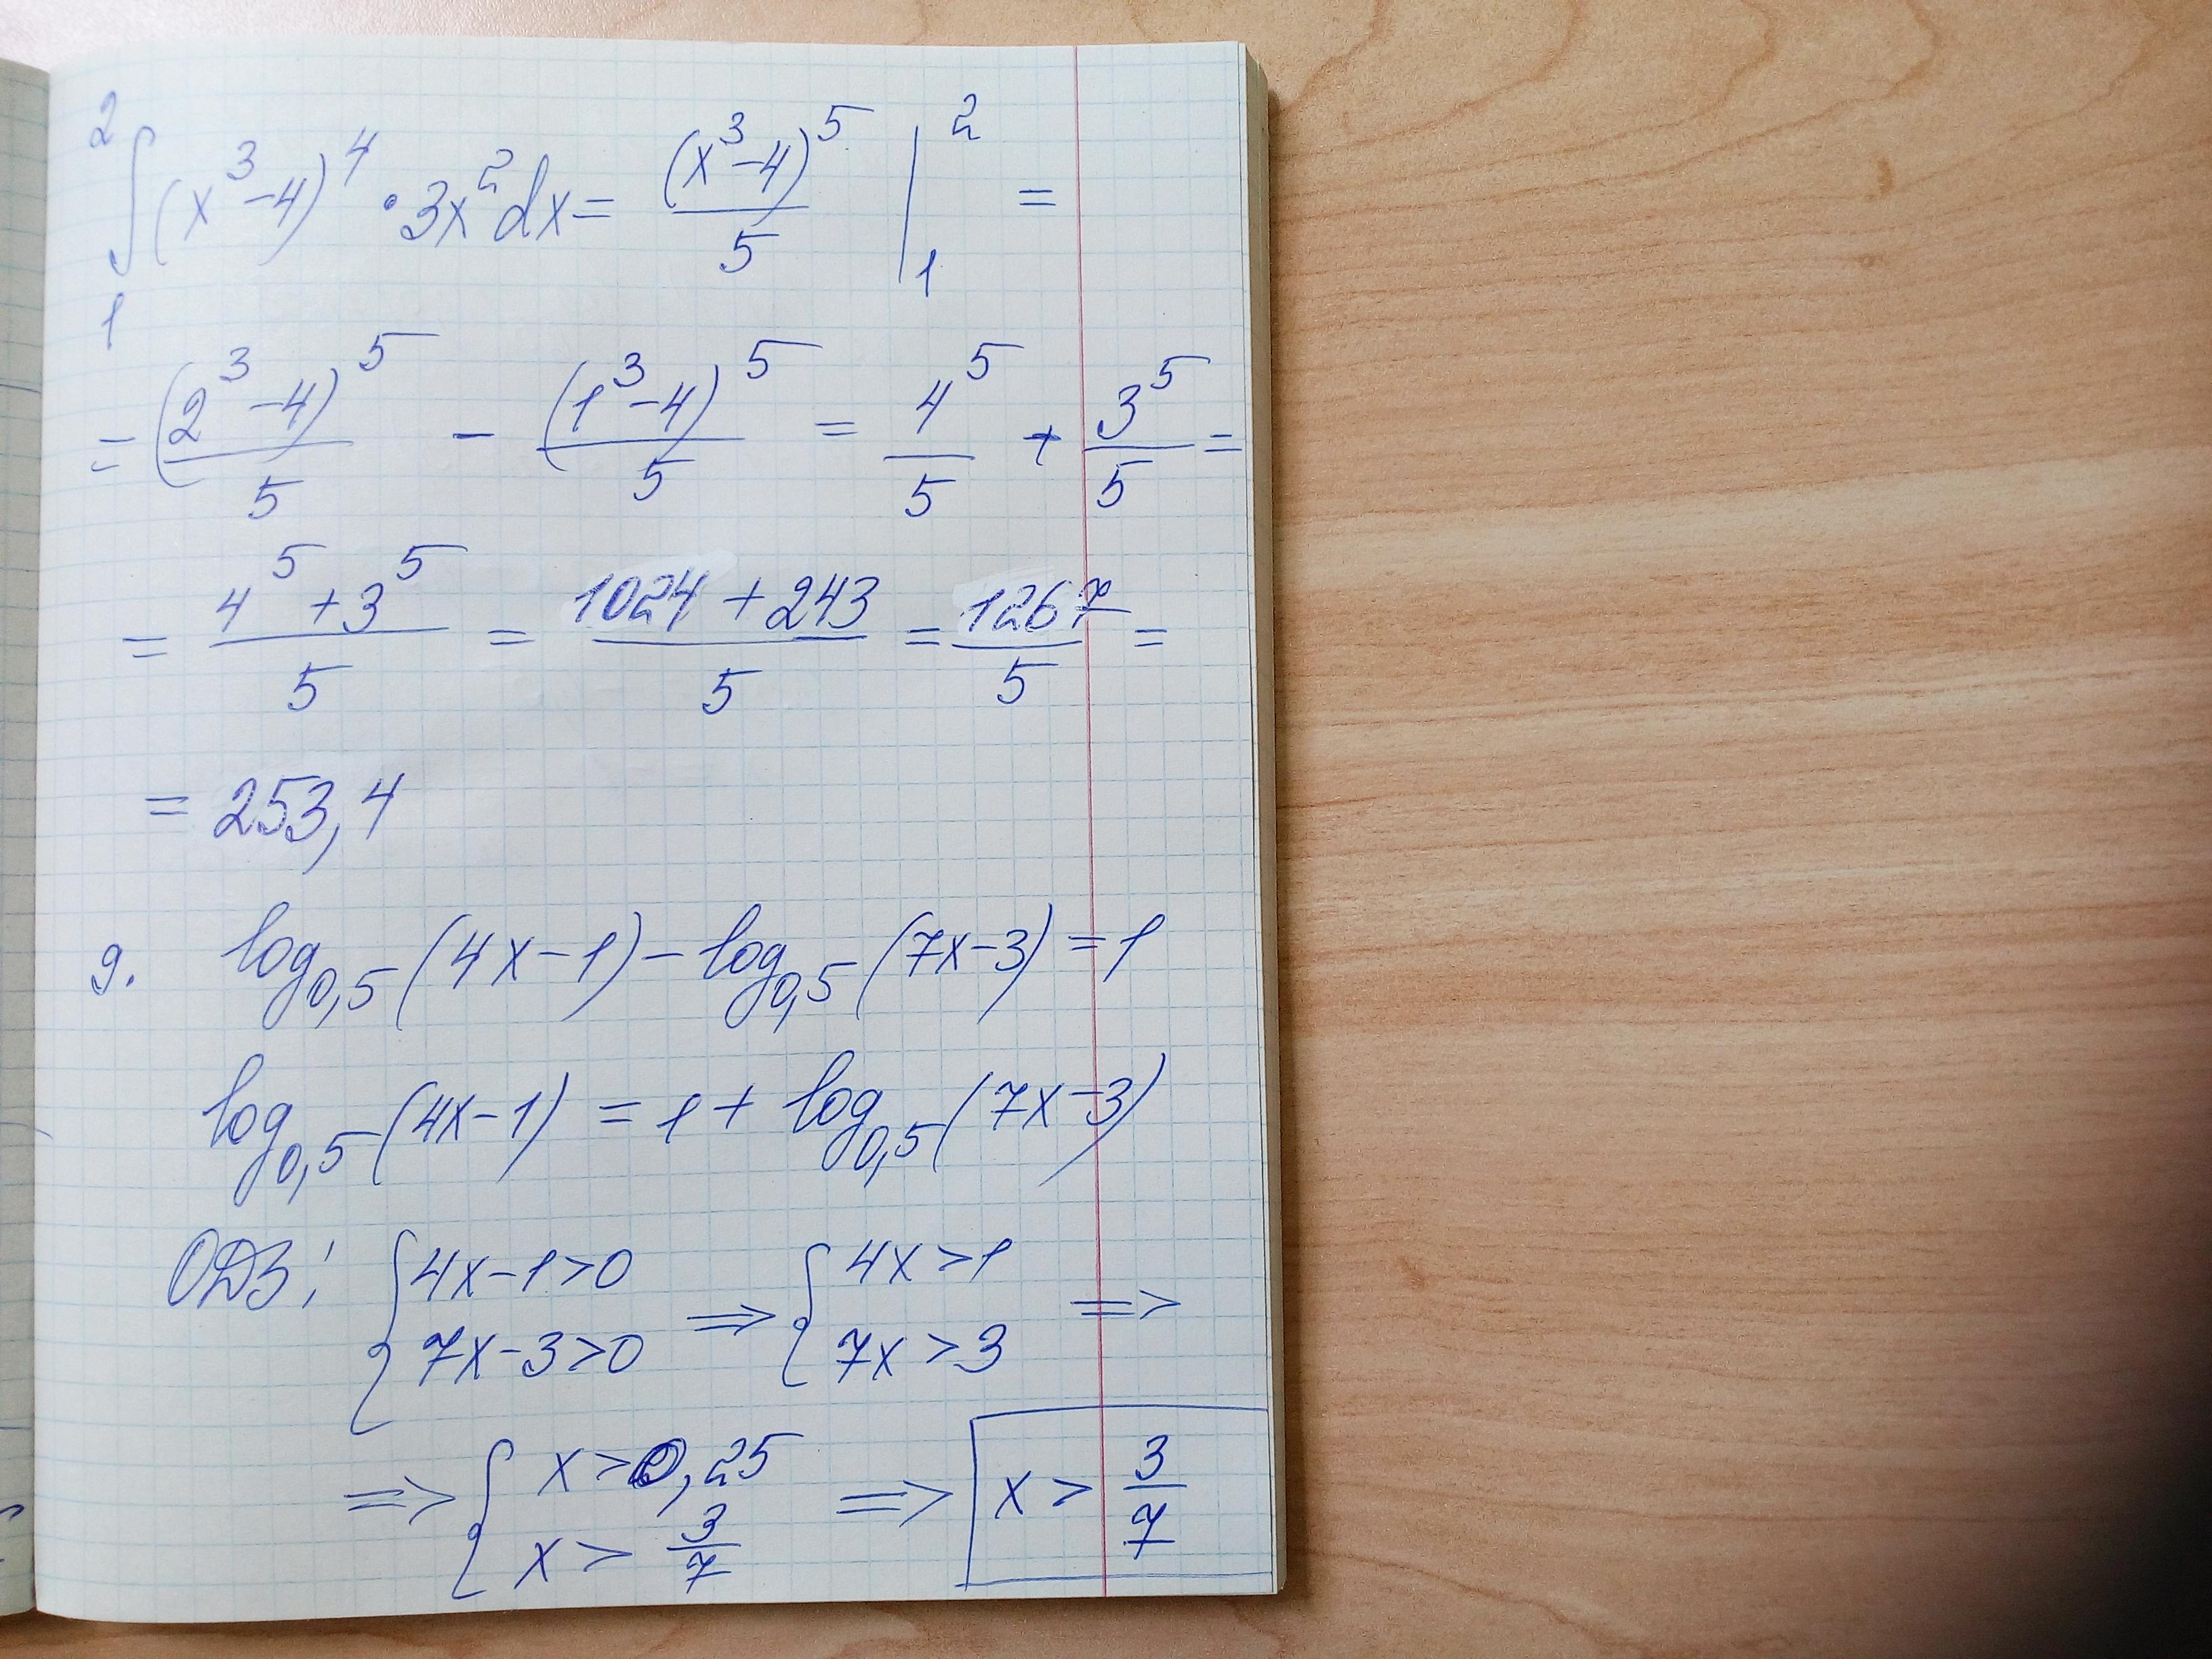 ∫₁² (x³-4)⁴ · 3x² dx = (x³-4)⁵/5 |₁² =
= (2³-4)⁵/5 - (1³-4)⁵/5 = 4⁵/5 + 3⁵/5 =
= (4⁵+3⁵)/5 = (1024+243)/5 = 1267/5 =
= 253,4
9. log₀,₅(4x-1) - log₀,₅(7x-3) = 1
log₀,₅(4x-1) = 1 + log₀,₅(7x-3)
ОДЗ: { 4x-1>0 ; 7x-3>0 => { 4x>1 ; 7x>3 =>
=> { x>0,25 ; x> 3/7 => x > 3/7